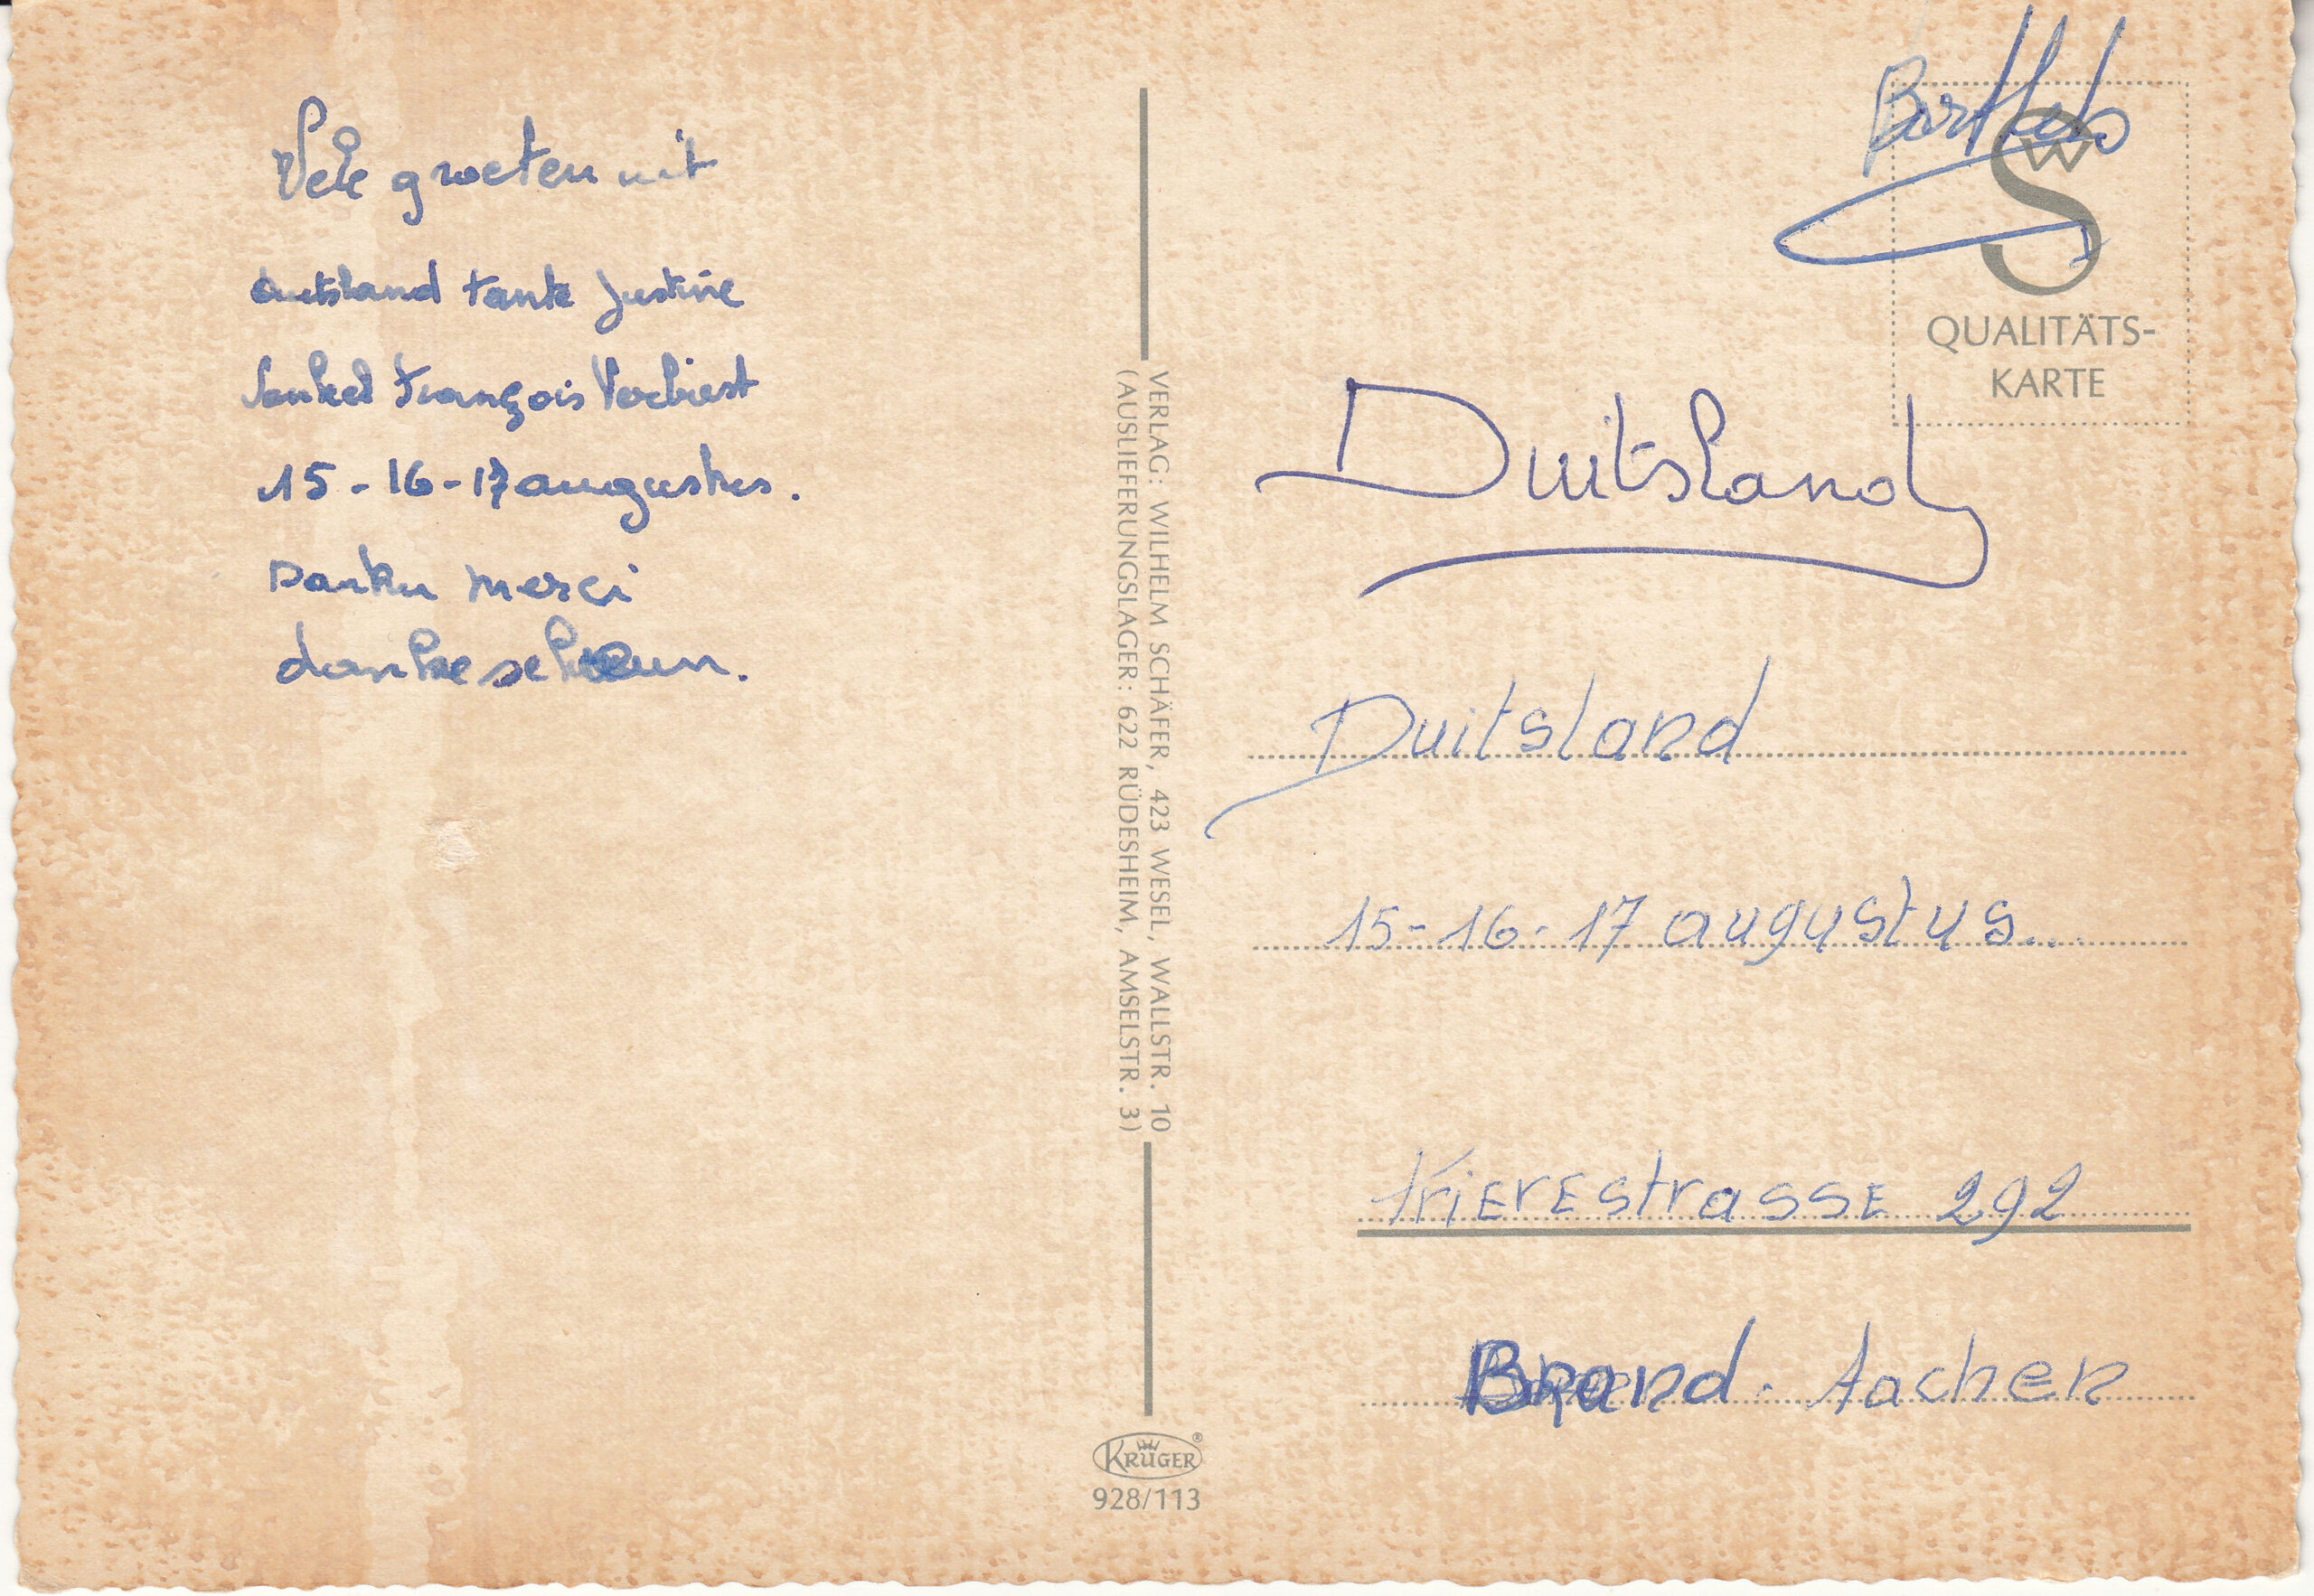 Vele groeten uit
duitsland tante Justine
François Verbiest
15 - 16 - 17 augustus.
Danku merci
danke
VERLAG: WILHELM SCHÄFER, 423 WESEL, WALLSTR. 10
(AUSLIEFERUNGSLAGER: 622 RÜDESHEIM, AMSELSTR. 3)
KRÜGER®
928/113
W
S
QUALITÄTS-
KARTE
Duitsland
Duitsland
15 - 16 - 17 augustus...
trierestrasse 292
Brand. Aachen